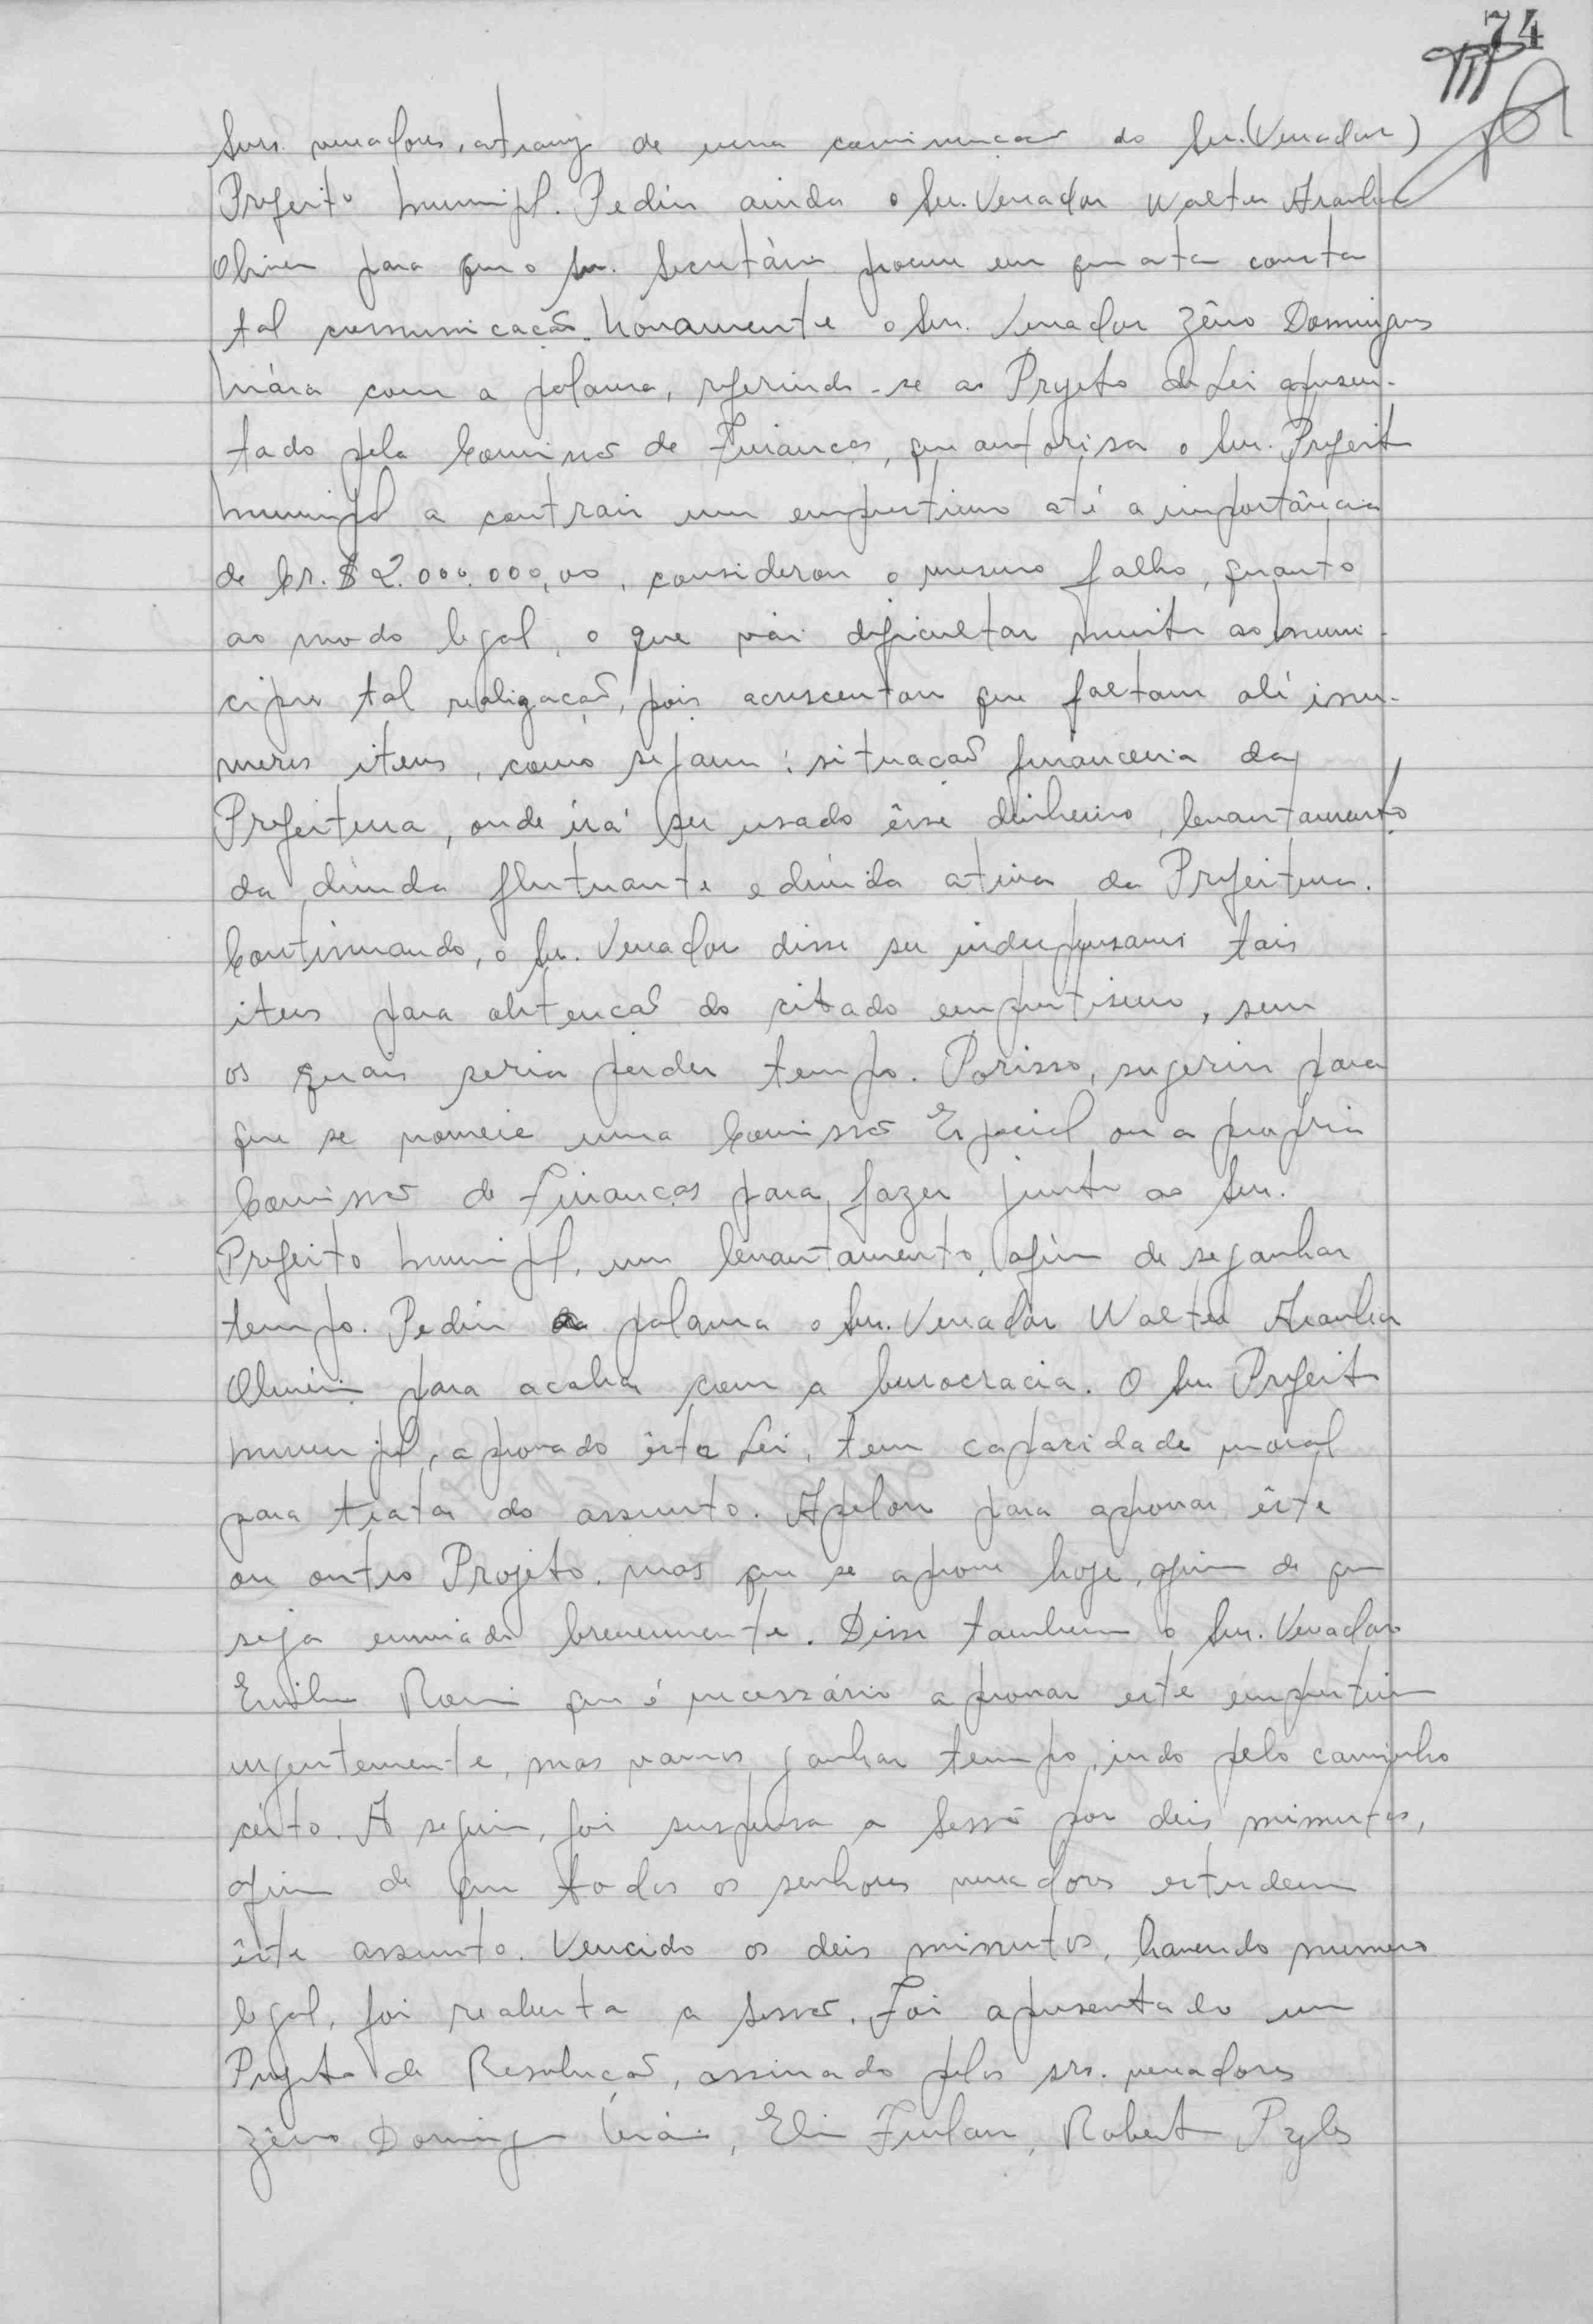 74
Snrs. vereadores, atravez de uma comunicacão do Snr. (Vereador)
Prefeito Municipal. Pediu ainda o Snr. Vereador Walter Aranha
Oliveira para que o Snr. Secretário procure em que ata consta
tal comunicacão. Novamente o Snr. Vereador Zêno Domingues
Maia com a palavra, referindo-se ao Projeto de Lei apresen-
tado pela Comissão de Financas, que autorisa o Snr. Prefeito
Municipal a contrair um emprestimo até a importância
de Cr.$ 2.000.000,00, considerou o mesmo falho, quanto
ao modo legal, o que vai dificultar muito ao Muni-
cipio tal realizacão, pois acrescentou que faltam ali inu-
meros itens, como sejam: situacão financeira da
Prefeitura, onde irá ser usado êsse dinheiro, levantamento
da divida flutuante e divida ativa da Prefeitura.
Continuando, o Snr. Vereador disse ser indespensaveis tais
itens para obtencão do citado emprestimo, sem
os quais seria perder tempo. Porisso, sugeriu para
que se nomeie uma Comissão Especial ou a propria
Comissão de Financas para fazer junto ao Snr.
Prefeito Municipal, um levantamento, afim de se ganhar
tempo. Pediu a palavra o Snr. Vereador Walter Aranha
Oliveira para acabar com a burocracia. O Snr. Prefeito
Municipal, aprovado êste Lei, tem capacidade moral
para tratar do assunto. Apelou para aprovar êste
ou outro Projeto, mas que se aprove hoje, afim de que
seja enviado brevemente. Disse tambem o Snr. Vereador
Emilio Romi que é necessário aprovar este emprestimo
urgentemente, mas vamos ganhar tempo, indo pelo caminho
certo. A seguir, foi suspensa a Sessão por deis minutos,
afim de que todos os senhores vereadores estudem
êste assunto. Vencido os deis minutos, havendo numero
legal, foi reaberta a Sessão. Foi apresentado um
Projeto de Resolucão, assinado pelos srs. vereadores
Zêno Domingues Maia, Elio Furlan, Robert Pyles